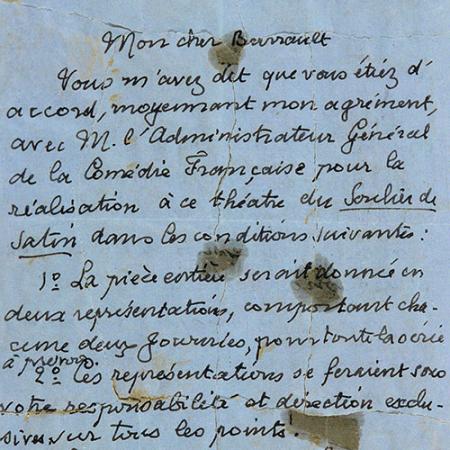 Mon cher Barrault
Vous m'avez dit que vous étiez d'
accord, moyennant mon agrément,
avec M. l'Administrateur Général
de la Comédie Française pour la
réalisation à ce théatre du Soulier de
Satin dans les conditions suivantes :
1º La pièce entière serait donnée en
deux représentations, comportant cha-
cune deux journées, pour toute la série
à
2º Les représentations se feraient sous
votre responsabilité et direction exclu-
sives sur tous les points.